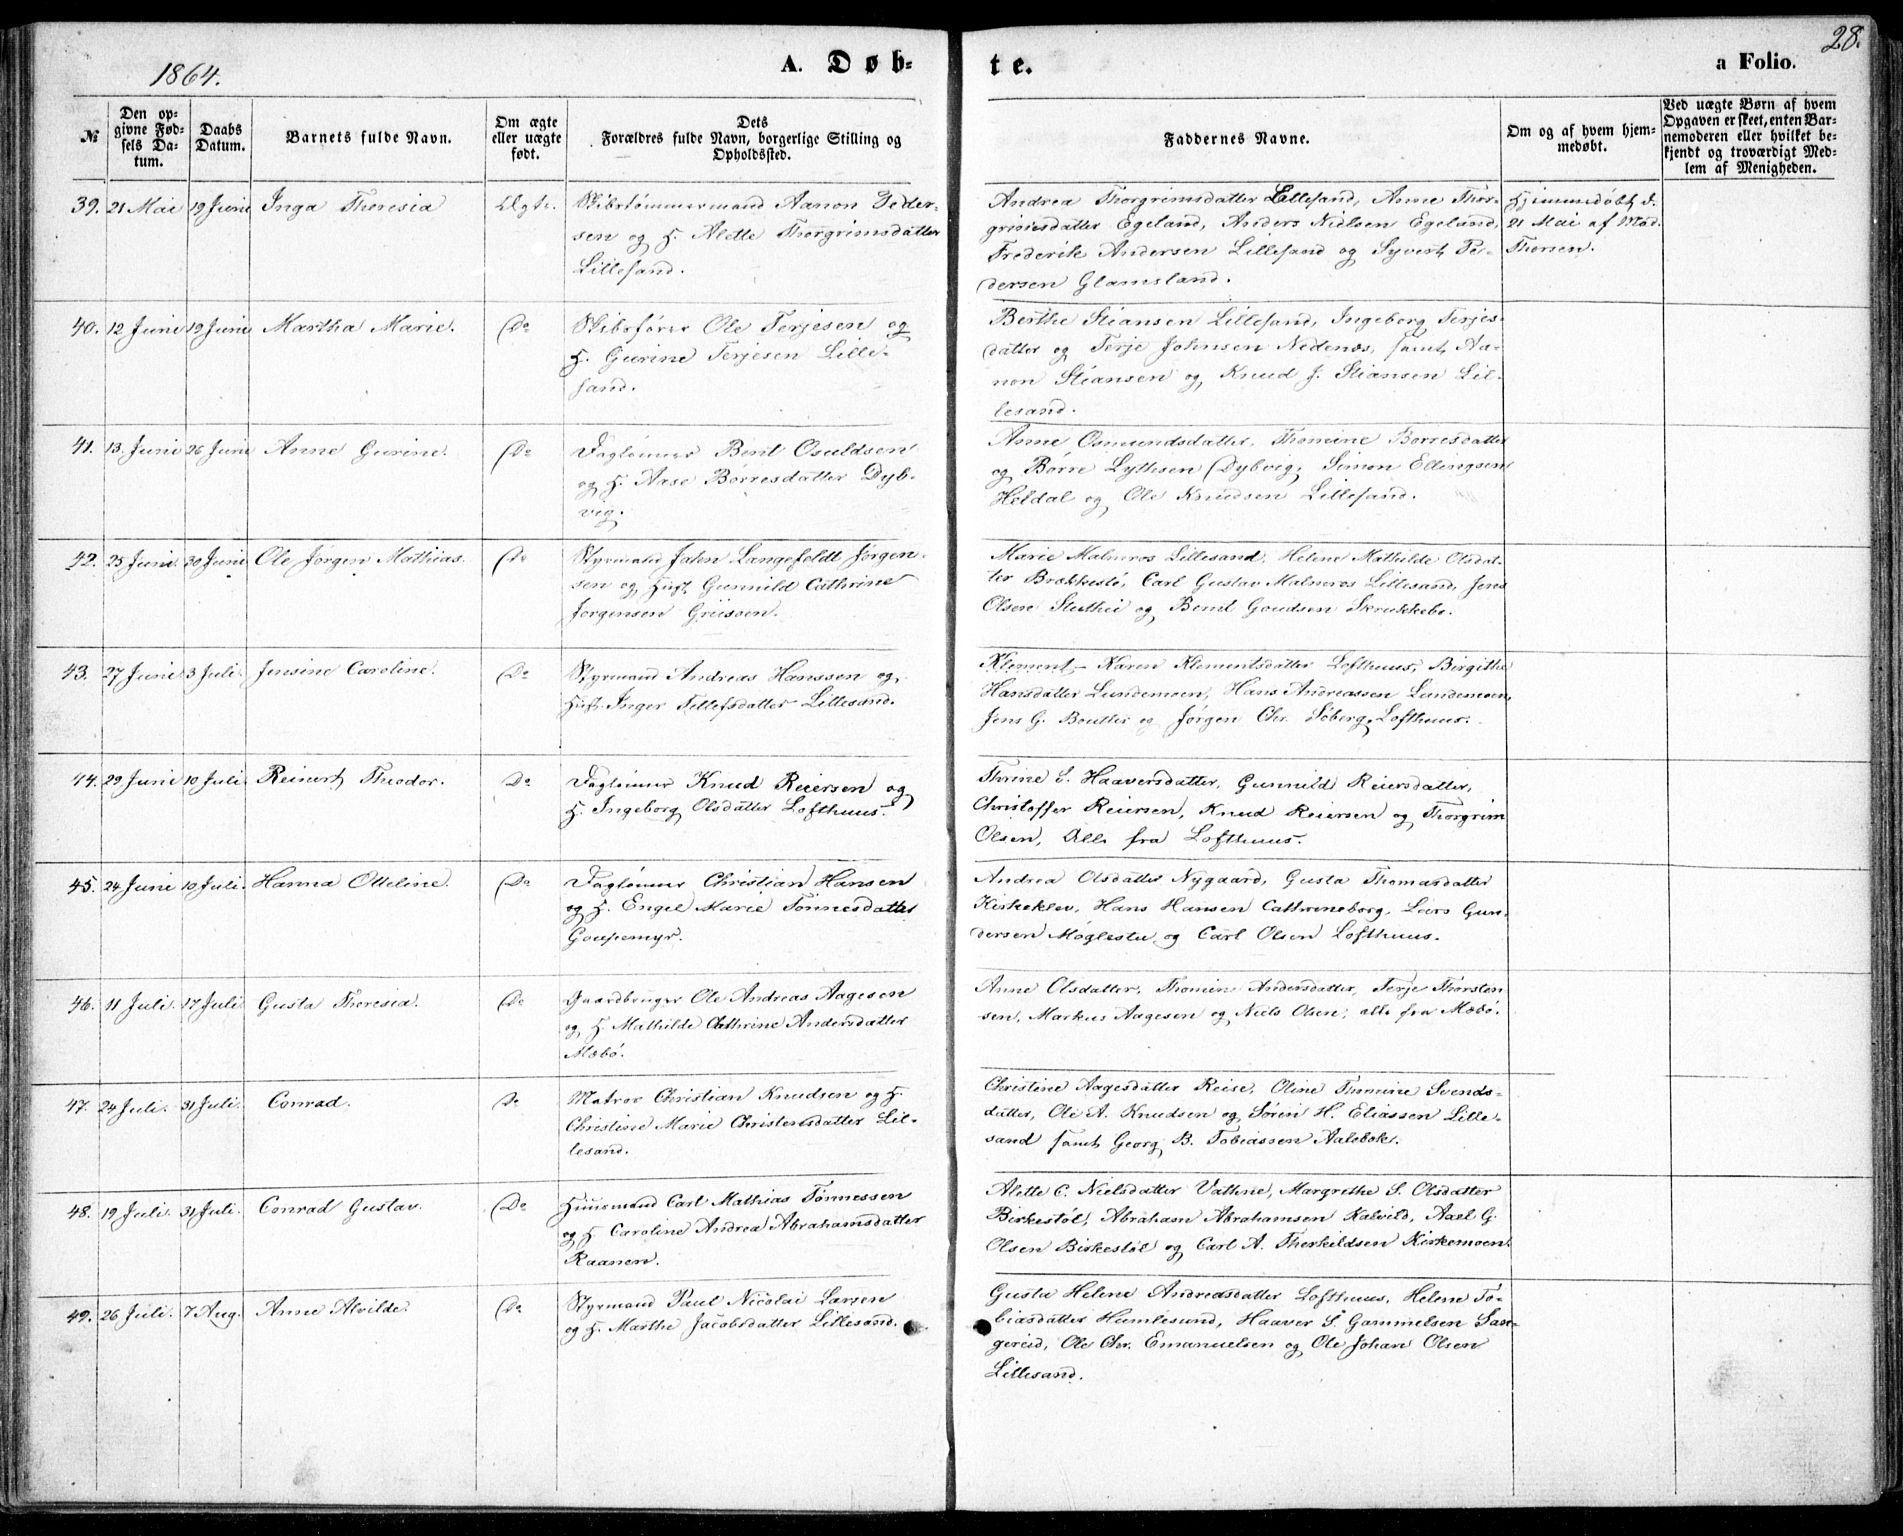 1864.
A. Døb-
te.
a Folio.
28.
№
Den op-
givne Fød-
sels Da-
tum.
Daabs
Datum.
Barnets fulde Navn.
Om ægte
eller uægte
født.
Dets
Forældres fulde Navn, borgerlige Stilling og
Opholdssted.
Faddernes Navne.
Om og af hvem hjem-
medøbt.
Ved uægte Børn af hvem
Opgaven er skeet, enten Bar-
nemoderen eller hvilket be-
kjendt og troværdigt Med-
lem af Menigheden.
39. 21 Mai 19 Juni Inga Theresia Ægte.
Skibstømmermand Aanon Peder-
sen og H. Alette Thorgrimsdatter
Lillesand.
Andrea Thorgrimsdatter Lillesand, Anne Thor-
grimsdatter Egeland, Anders Nielsen Egeland,
Frederik Andersen Lillesand og Syvert Pe-
dersen Glamsland.
Hjemmedøbt d.
21 Mai af Mad.
Thorsen.
40. 12 Juni 19 Juni Martha Marie. Do
Skibsfører Ole Terjesen og
H. Gurine Terjesen Lille-
sand.
Berthe Stiansen Lillesand, Ingeborg Terjes-
datter og Terje Johnsen Nedenæs, samt Aa-
non Stiansen og Knud J. Stiansen Lil-
lesand.
41. 13 Juni 26 Juni Anne Gurine. Do
Daglønner Berit Osuldsen
og H. Aase Børresdatter Dyb-
vig.
Anne Osmundsdatter, Thomine Børresdatter
og Børre Lyttesen Dybvig, Simon Ellingsen
Heldal og Ole Knudsen Lillesand.
42. 25 Juni 30 Juni Ole Jørgen Mathias. Do
Styrmand Jahn Langefeldt Jørgen-
sen og Hust. Gunnild Cathrine
Jørgensen Griisøen.
Marie Malmros Lillesand, Helene Mathilde Olsdat-
ter Brækkestø, Carl Gustav Malmros Lillesand, Jens
Olsen Stuthei og Bernt Goudsen Skrukkebo.
43. 27 Juni 3 Juli. Jensine Caroline. Do
Styrmand Andreas Hanssen og
Hust. Inger Tellefsdatter Lillesand.
Klement- Karen Klementsdatter Lofthuus, Birgithe
Hansdatter Lundemoen, Hans Andreassen Lundemoen,
Jens G. Boutter og Jørgen Chr. Søberg, Lofthuus.
44. 29 Juni 10 Juli. Reinert Theodor. Do
Daglønner Knud Reiersen og
H. Ingeborg Olsdatter Lofthuus.
Thrine L. Haaversdatter, Gunnild Reiersdatter,
Christoffer Reiersen, Knud Reiersen og Thorgrim
Olsen, Alle fra Lofthuus.
45. 24 Juni 10 Juli. Hanna Otteline. Do
Daglønner Christian Hansen
og H. Engel Marie Tønnesdatter
Goupemyr.
Andrea Olsdatter Nygaard, Gusta Thomasdatter
Kirkeklev, Hans Hansen Cathrineborg, Lars Gun-
dersen Møglestu og Carl Olsen Lofthuus.
46. 11 Juli. 17 Juli. Gusta Theresia. Do
Gaardbruger Ole Andreas Aagesen
og H. Mathilde Cathrine Andersdatter
Mæbø.
Anne Olsdatter, Thomine Andersdatter, Terje Thorsten-
sen, Markus Aagesen og Niels Olsen, alle fra Mæbø.
47. 24 Juli. 31 Juli. Conrad. Do
Matros Christian Knudsen og H.
Christine Marie Christensdatter Lil-
lesand.
Christine Aagesdatter Reise, Oline Thomine Svends-
datter, Ole A. Knudsen og Søren H. Eliassen Lille-
sand samt Georg B. Tobiassen Aalebæk.
48. 19 Juli. 31 Juli. Conrad Gustav. Do
Huusmand Carl Mathias Tønnessen
og H. Caroline Andrea Abrahamsdatter
Raanen.
Alette C. Nielsdatter Vathne, Margrethe S. Olsdatter
Birkestøl, Abraham Abrahamsen Kalvild, Axel G.
Olsen Birkestøl og Carl A. Therkildsen Kirkemoen.
49. 26 Juli. 7 Aug. Anne Alvilde. Do
Styrmand Paul Nicolai Larsen
og H. Marthe Jacobsdatter Lillesand.
Gusta Helene Andreasdatter Lofthuus, Helene To-
biasdatter Humlesund, Haaver S. Gammelsen San-
gereid, Ole Chr. Emanuelsen og Ole Johan Olsen
Lillesand.